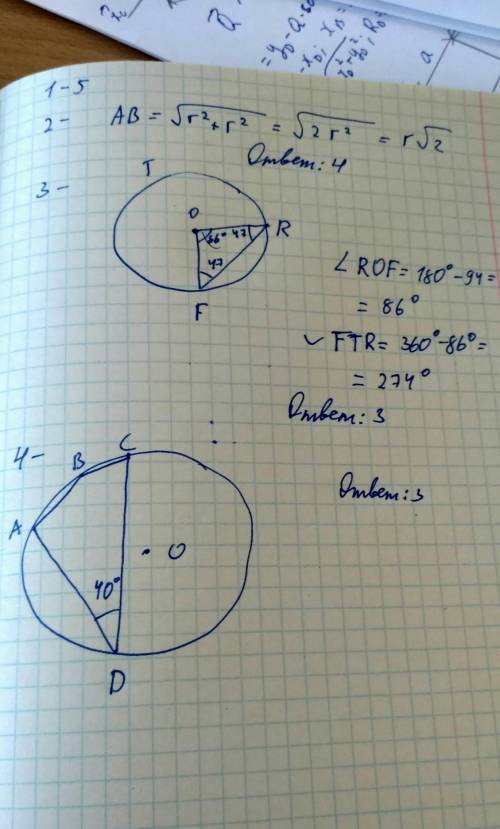 1-5
2- AB = √r²+r² = √2r² = r√2
Ответ: 4
3-
T
O
86° 47
R
47
F
∠ROF = 180°-94=
= 86°
◡FTR = 360°-86°=
= 274°
Ответ: 3
4-
C
B
Ответ: 3
A
O
40°
D